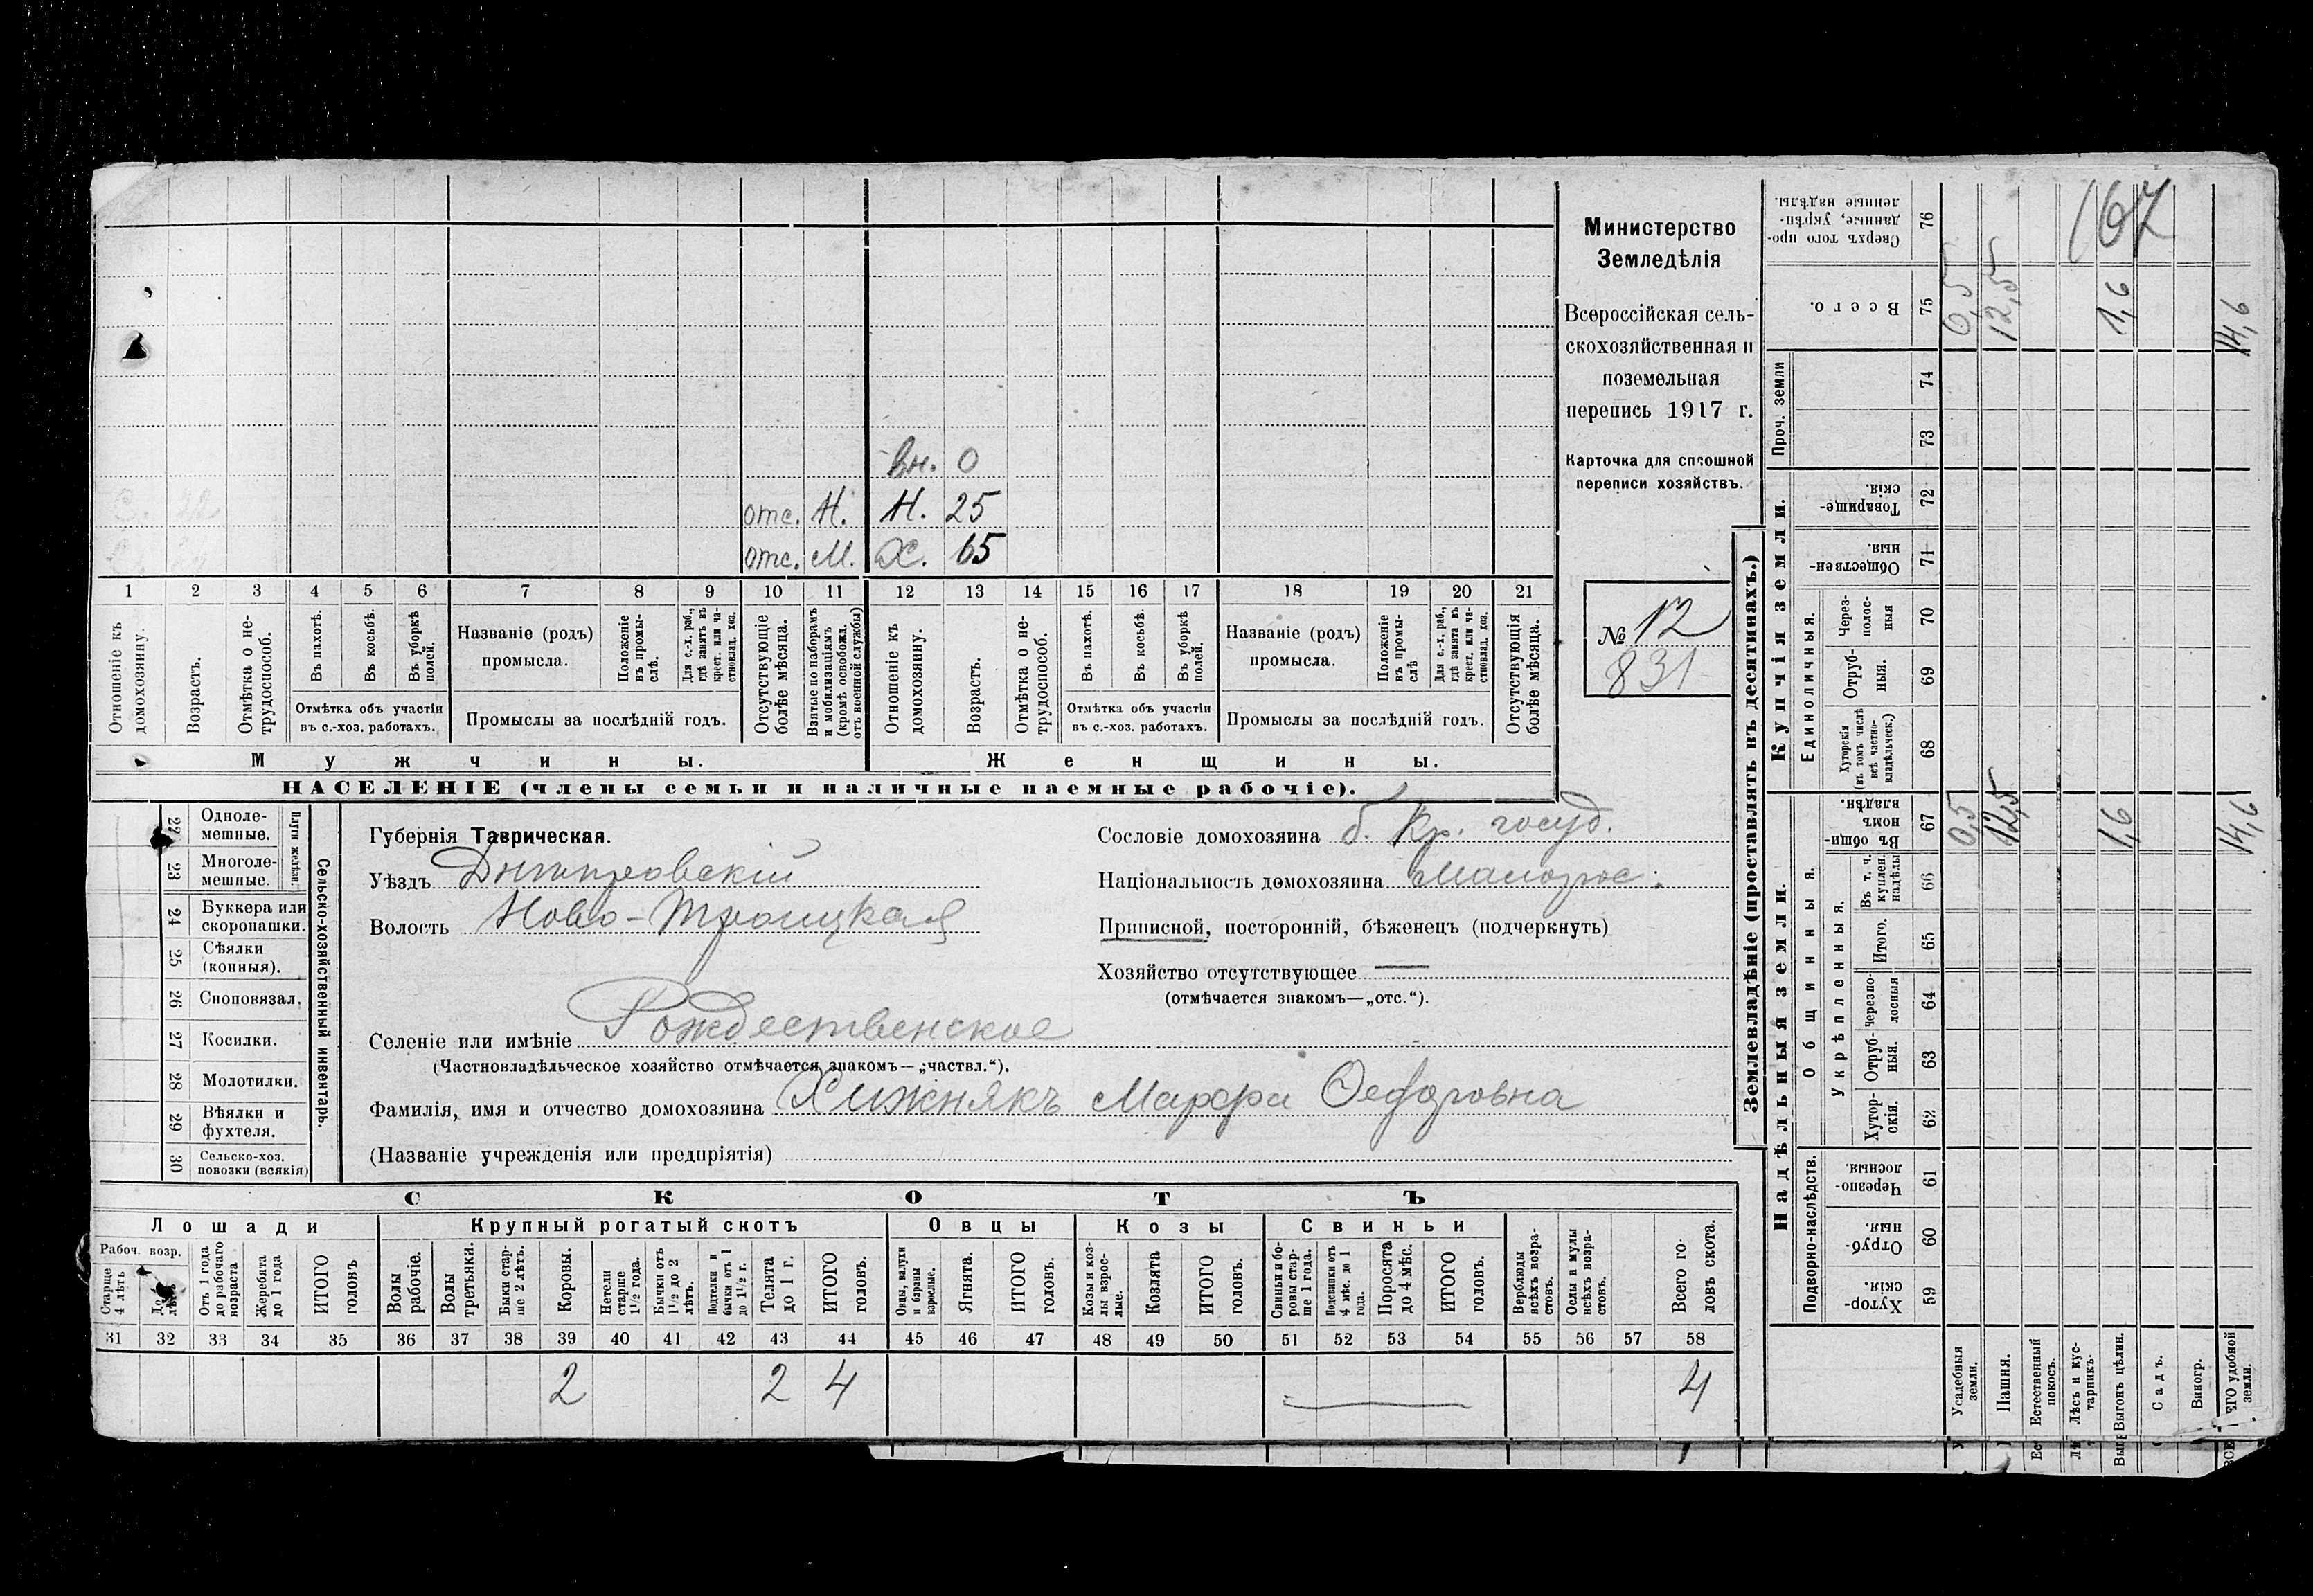 вн. 0
отс. Н. Н. 25
отс. М. Х. 65
1 2 3 4 5 6 7 8 9 10 11 12 13 14 15 16 17 18 19 20 21
Отношеніе къ домохозяину.
Возрастъ.
Отмѣтка о нетрудоспособ.
Въ пахотѣ.
Въ косьбѣ.
Въ уборкѣ полей.
Отмѣтка объ участіи
въ с.-хоз. работахъ.
Названіе (родъ)
промысла.
Положеніе въ промыслѣ.
Для с.-х. раб., гдѣ занятъ въ крест. или частновлад. хоз.
Промыслы за послѣдній годъ.
Отсутствующіе болѣе мѣсяца.
Взятые по наборамъ и мобилизаціямъ (кромѣ освобожд. отъ военной службы)
Отношеніе къ домохозяину.
Возрастъ.
Отмѣтка о нетрудоспособ.
Въ пахотѣ.
Въ косьбѣ.
Въ уборкѣ полей.
Отмѣтка объ участіи
въ с.-хоз. работахъ.
Названіе (родъ)
промысла.
Положеніе въ промыслѣ
Для с.-х. раб., гдѣ занята въ крест. или частновлад. хоз.
Промыслы за послѣдній годъ.
Отсутствующія болѣе мѣсяца.
Мужчины. Женщины.
НАСЕЛЕНІЕ (члены семьи и наличные наемные рабочіе).
Министерство
Земледѣлія
Всероссійская сель-
скохозяйственная и
поземельная
перепись 1917 г.
Карточка для сплошной
переписи хозяйствъ.
№ 12
831
22 Однолемешные.
23 Многолемешные.
Плуги желѣзн.
24 Буккера или скоропашки.
25 Сѣялки (конныя).
26 Сноповязал.
27 Косилки.
28 Молотилки.
29 Вѣялки и фухтеля.
30 Сельско-хоз. повозки (всякія)
Сельско-хозяйственный инвентарь.
Губернія Таврическая.
Уѣздъ Днѣпровскій
Волость Ново-Троицкая
Сословіе домохозяина б. Кр. госуд.
Національность домохозяина Малорос.
Приписной, посторонній, бѣженецъ (подчеркнуть)
Хозяйство отсутствующее —
(отмѣчается знакомъ—„отс.“).
Селеніе или имѣніе Рождественское
(Частновладѣльческое хозяйство отмѣчается знакомъ—„частвл.“).
Фамилія, имя и отчество домохозяина Хижнякъ Марфа Федоровна
(Названіе учрежденія или предпріятія)
СКОТЪ
Лошади Крупный рогатый скотъ Овцы Козы Свиньи
Рабоч. возр.
Старше 4 лѣтъ
До лѣтъ
Отъ 1 года до рабочаго возраста
Жеребята до 1 года
ИТОГО головъ
Волы рабочіе.
Волы третьяки.
Быки старше 2 лѣтъ.
Коровы.
Нетели старше 1½ года.
Бычки отъ 1½ до 2 лѣтъ.
Подтелки и бычки отъ 1 до 1½ г.
Телята до 1 г.
ИТОГО головъ.
Овцы, валухи и бараны взрослые.
Ягнята.
ИТОГО головъ.
Козы и козлы взрослые.
Козлята
ИТОГО головъ.
Свиньи и боровы старше 1 года.
Подсвинки отъ 4 мѣс. до 1 года.
Поросята до 4 мѣс.
ИТОГО головъ.
Верблюды всѣхъ возрастовъ.
Ослы и мулы всѣхъ возрастовъ.
Всего головъ скота.
31 32 33 34 35 36 37 38 39 40 41 42 43 44 45 46 47 48 49 50 51 52 53 54 55 56 57 58
2 2 4 — 4
Землевладѣніе (проставлять въ десятинахъ.)
167
Сверхъ того проданные, укрѣпленные надѣлы. 76
Всего. 75 0,5 12,5 1,6 14,6
Проч. земли 74 73
Купчія земли.
Товарищескія. 72
Общественныя. 71
Единоличныя.
Черезполосныя 70
Отрубныя. 69
Хуторскія (въ томъ числѣ всѣ частновладѣльческ.) 68
Надѣльныя земли.
Общинныя.
Въ общинномъ владѣн. 67 0,5 12,5 1,6 14,6
Укрѣпленныя.
Въ т. ч. куплен. надѣлы 66
Итого. 65
Черезполосныя 64
Отрубныя. 63
Хуторскія. 62
Подворно-наслѣдств.
Черезполосныя. 61
Отрубныя. 60
Хуторскія. 59
Усадебныя земли.
Пашня.
Естественный покосъ.
Лѣсъ и кустарникъ.
Выгонъ цѣлин.
Садъ.
Виногр.
ЕГО удобной земли.